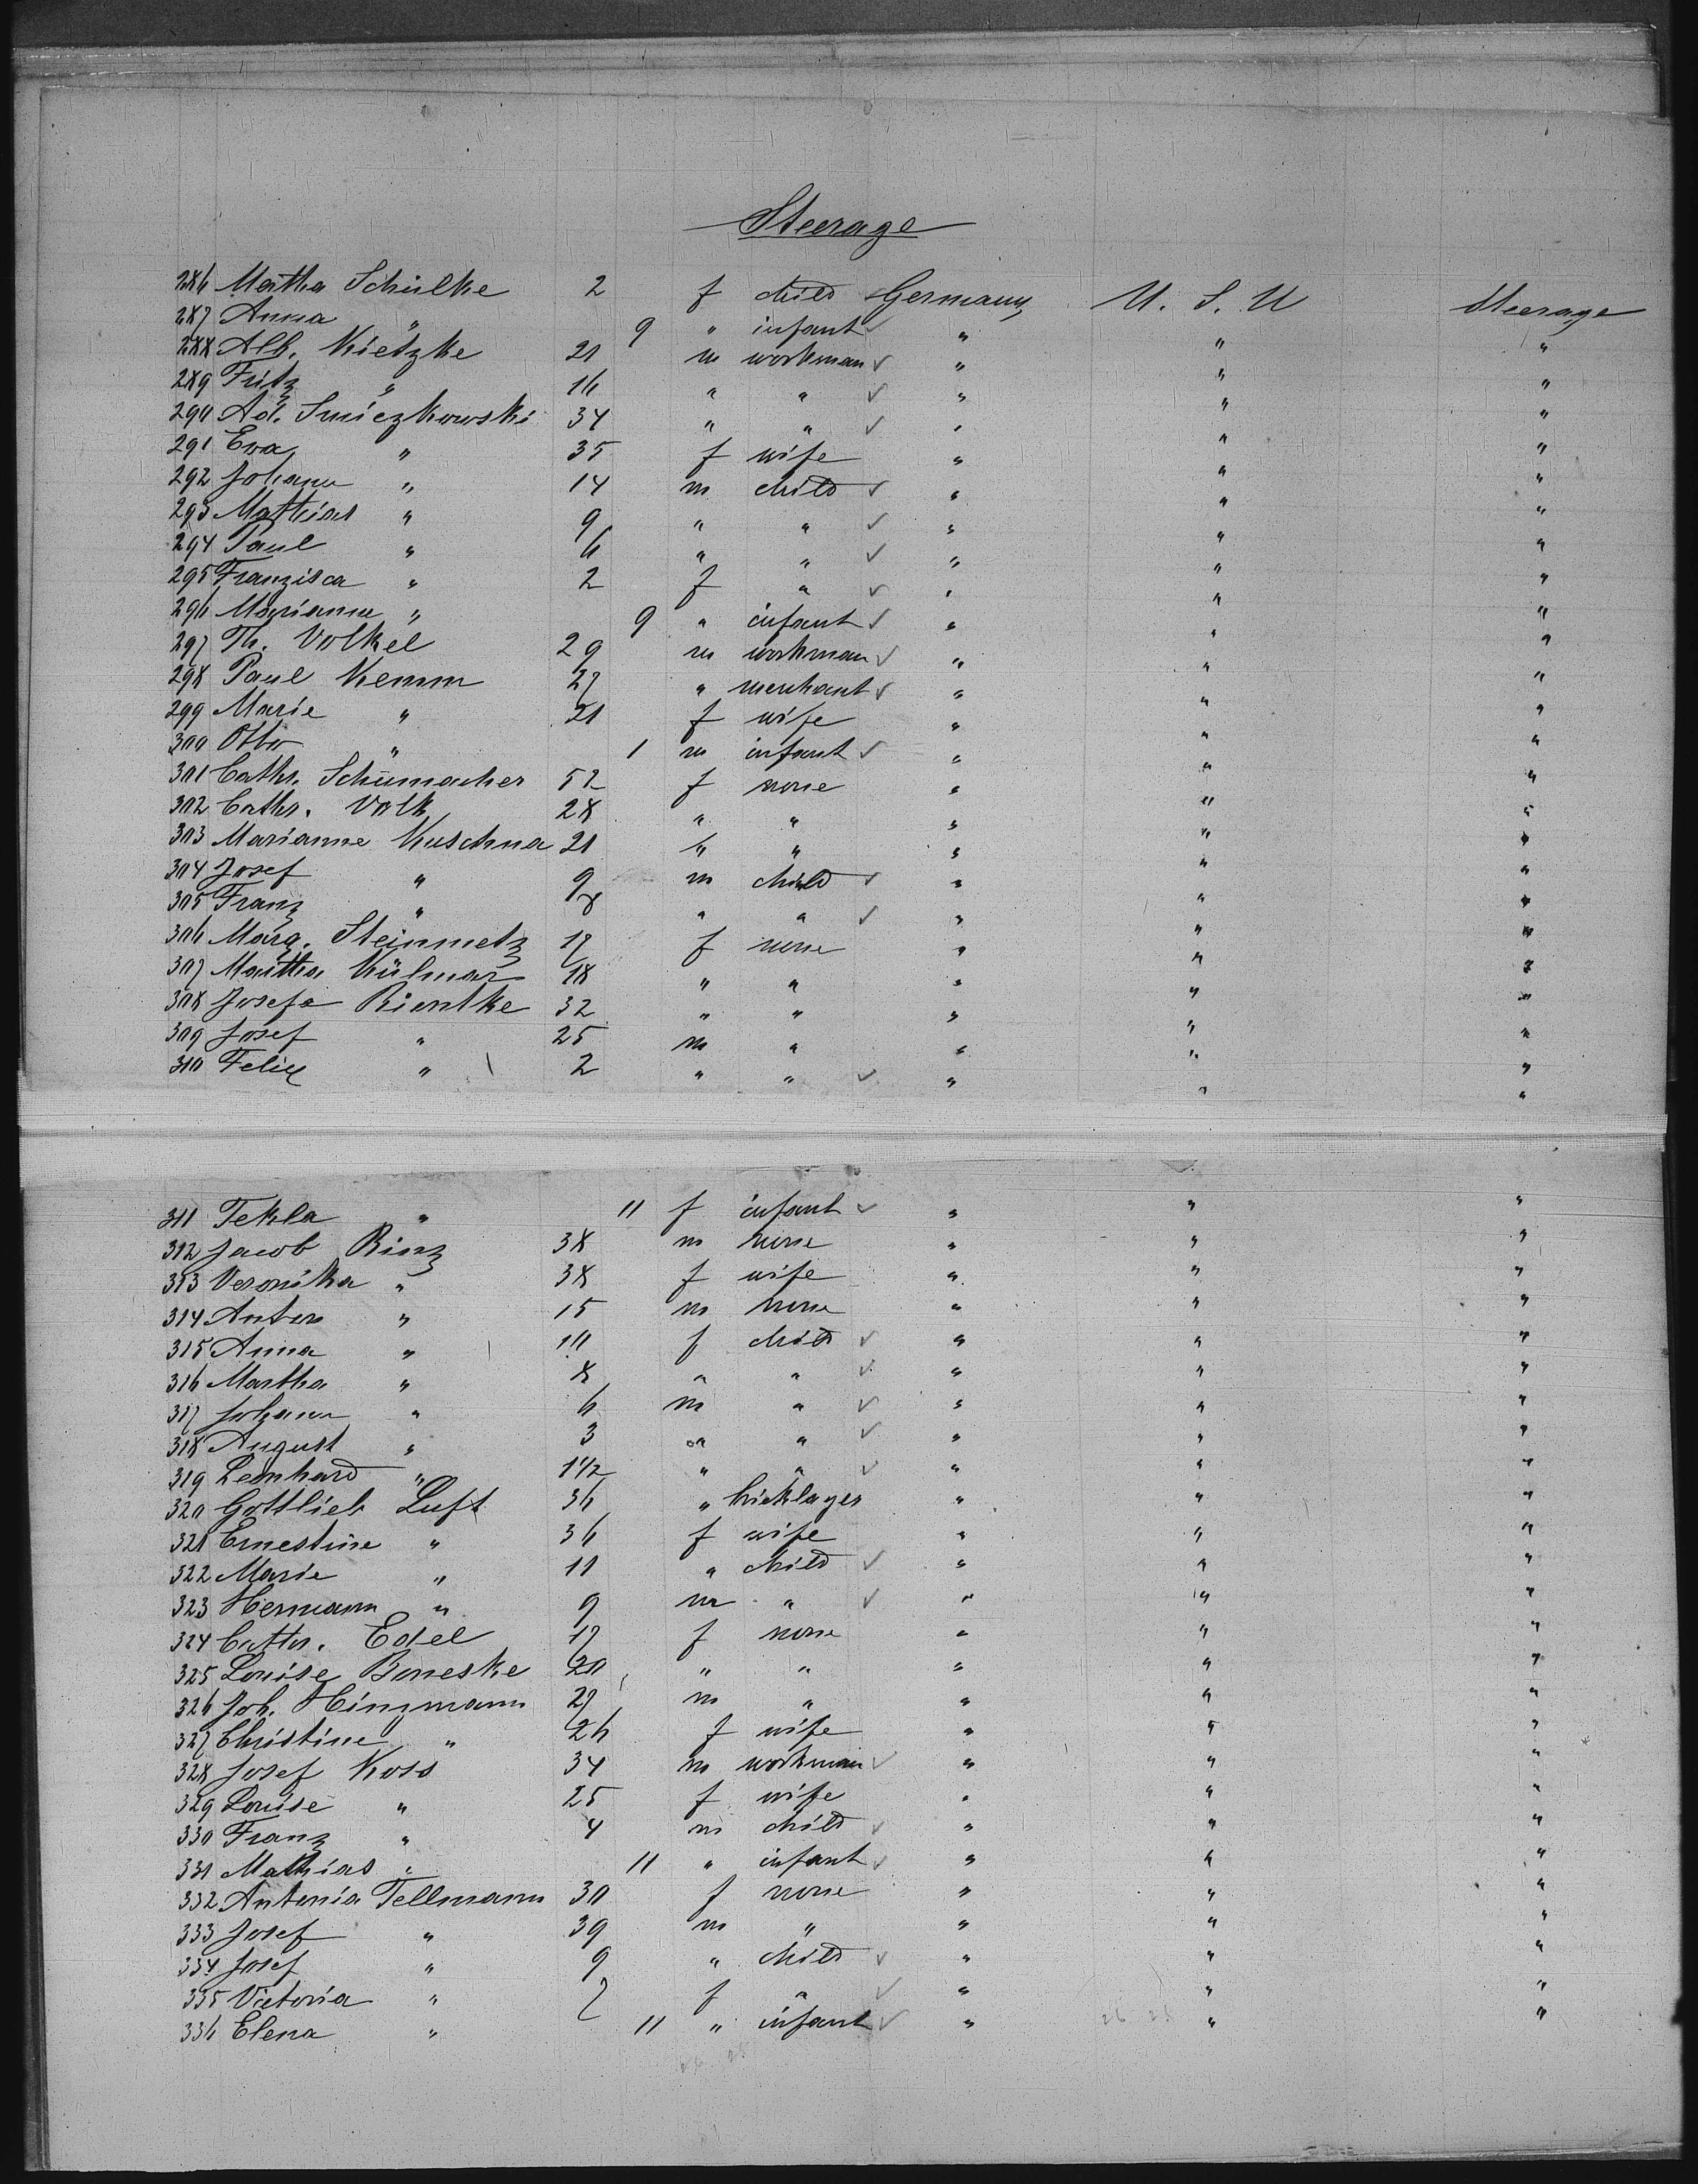 Steerage
286 Martha Schülke 2 f child Germany U. S. U Steerage
287 Anna " 9 " infant " " "
288 Alb. Kietzke 21 m workman " " "
289 Fritz " 16 " " " " "
290 Ad. Smiczkowski 34 " " " " "
291 Eva " 35 f wife " " "
292 Johann " 14 m child " " "
293 Mathias " 9 " " " " "
294 Paul " 6 " " " " "
295 Franzisca " 2 f " " " "
296 Marianne " 9 " infant " " "
297 Th. Volkel 29 m workman " " "
298 Paul Kemm 27 " merchant " " "
299 Marie " 21 f wife " " "
300 Otto " 1 m infant " " "
301 Cathr. Schumacher 52 f none " " "
302 Cathr. Volk 28 " " " " "
303 Marianne Kuschna 21 " " " " "
304 Josef " 9 m child " " "
305 Franz " 8 " " " " "
306 Marg. Steinmetz 17 f none " " "
307 Martha Külmar 18 " " " " "
308 Josefa Rientke 32 " " " " "
309 Josef " 25 m " " " "
310 Felix " 2 " " " " "
311 Tekla " 11 f infant " " "
312 Jacob Rinz 38 m none " " "
313 Veronika " 38 f wife " " "
314 Anton " 15 m none " " "
315 Anna " 10 f child " " "
316 Martha " 8 " " " " "
317 Johann " 6 m " " " "
318 August " 3 " " " " "
319 Leonhard " 1 1/2 " " " " "
320 Gottlieb Luft 36 " bricklayer " " "
321 Ernestine " 36 f wife " " "
322 Marie " 11 " child " " "
323 Hermann " 9 m " " " "
324 Cathr. Edel 17 f none " " "
325 Louise Boneske 20 " " " " "
326 Joh. Hinzmann 27 m " " " "
327 Christine " 26 f wife " " "
328 Josef Koss 34 m workman " " "
329 Louise " 25 f wife " " "
330 Franz " 4 m child " " "
331 Mathias " 11 " infant " " "
332 Antonia Tellmann 30 f none " " "
333 Josef " 39 m " " " "
334 Josef " 9 " child " " "
335 Victoria " 7 f " " " "
336 Elena " 11 " infant " " "